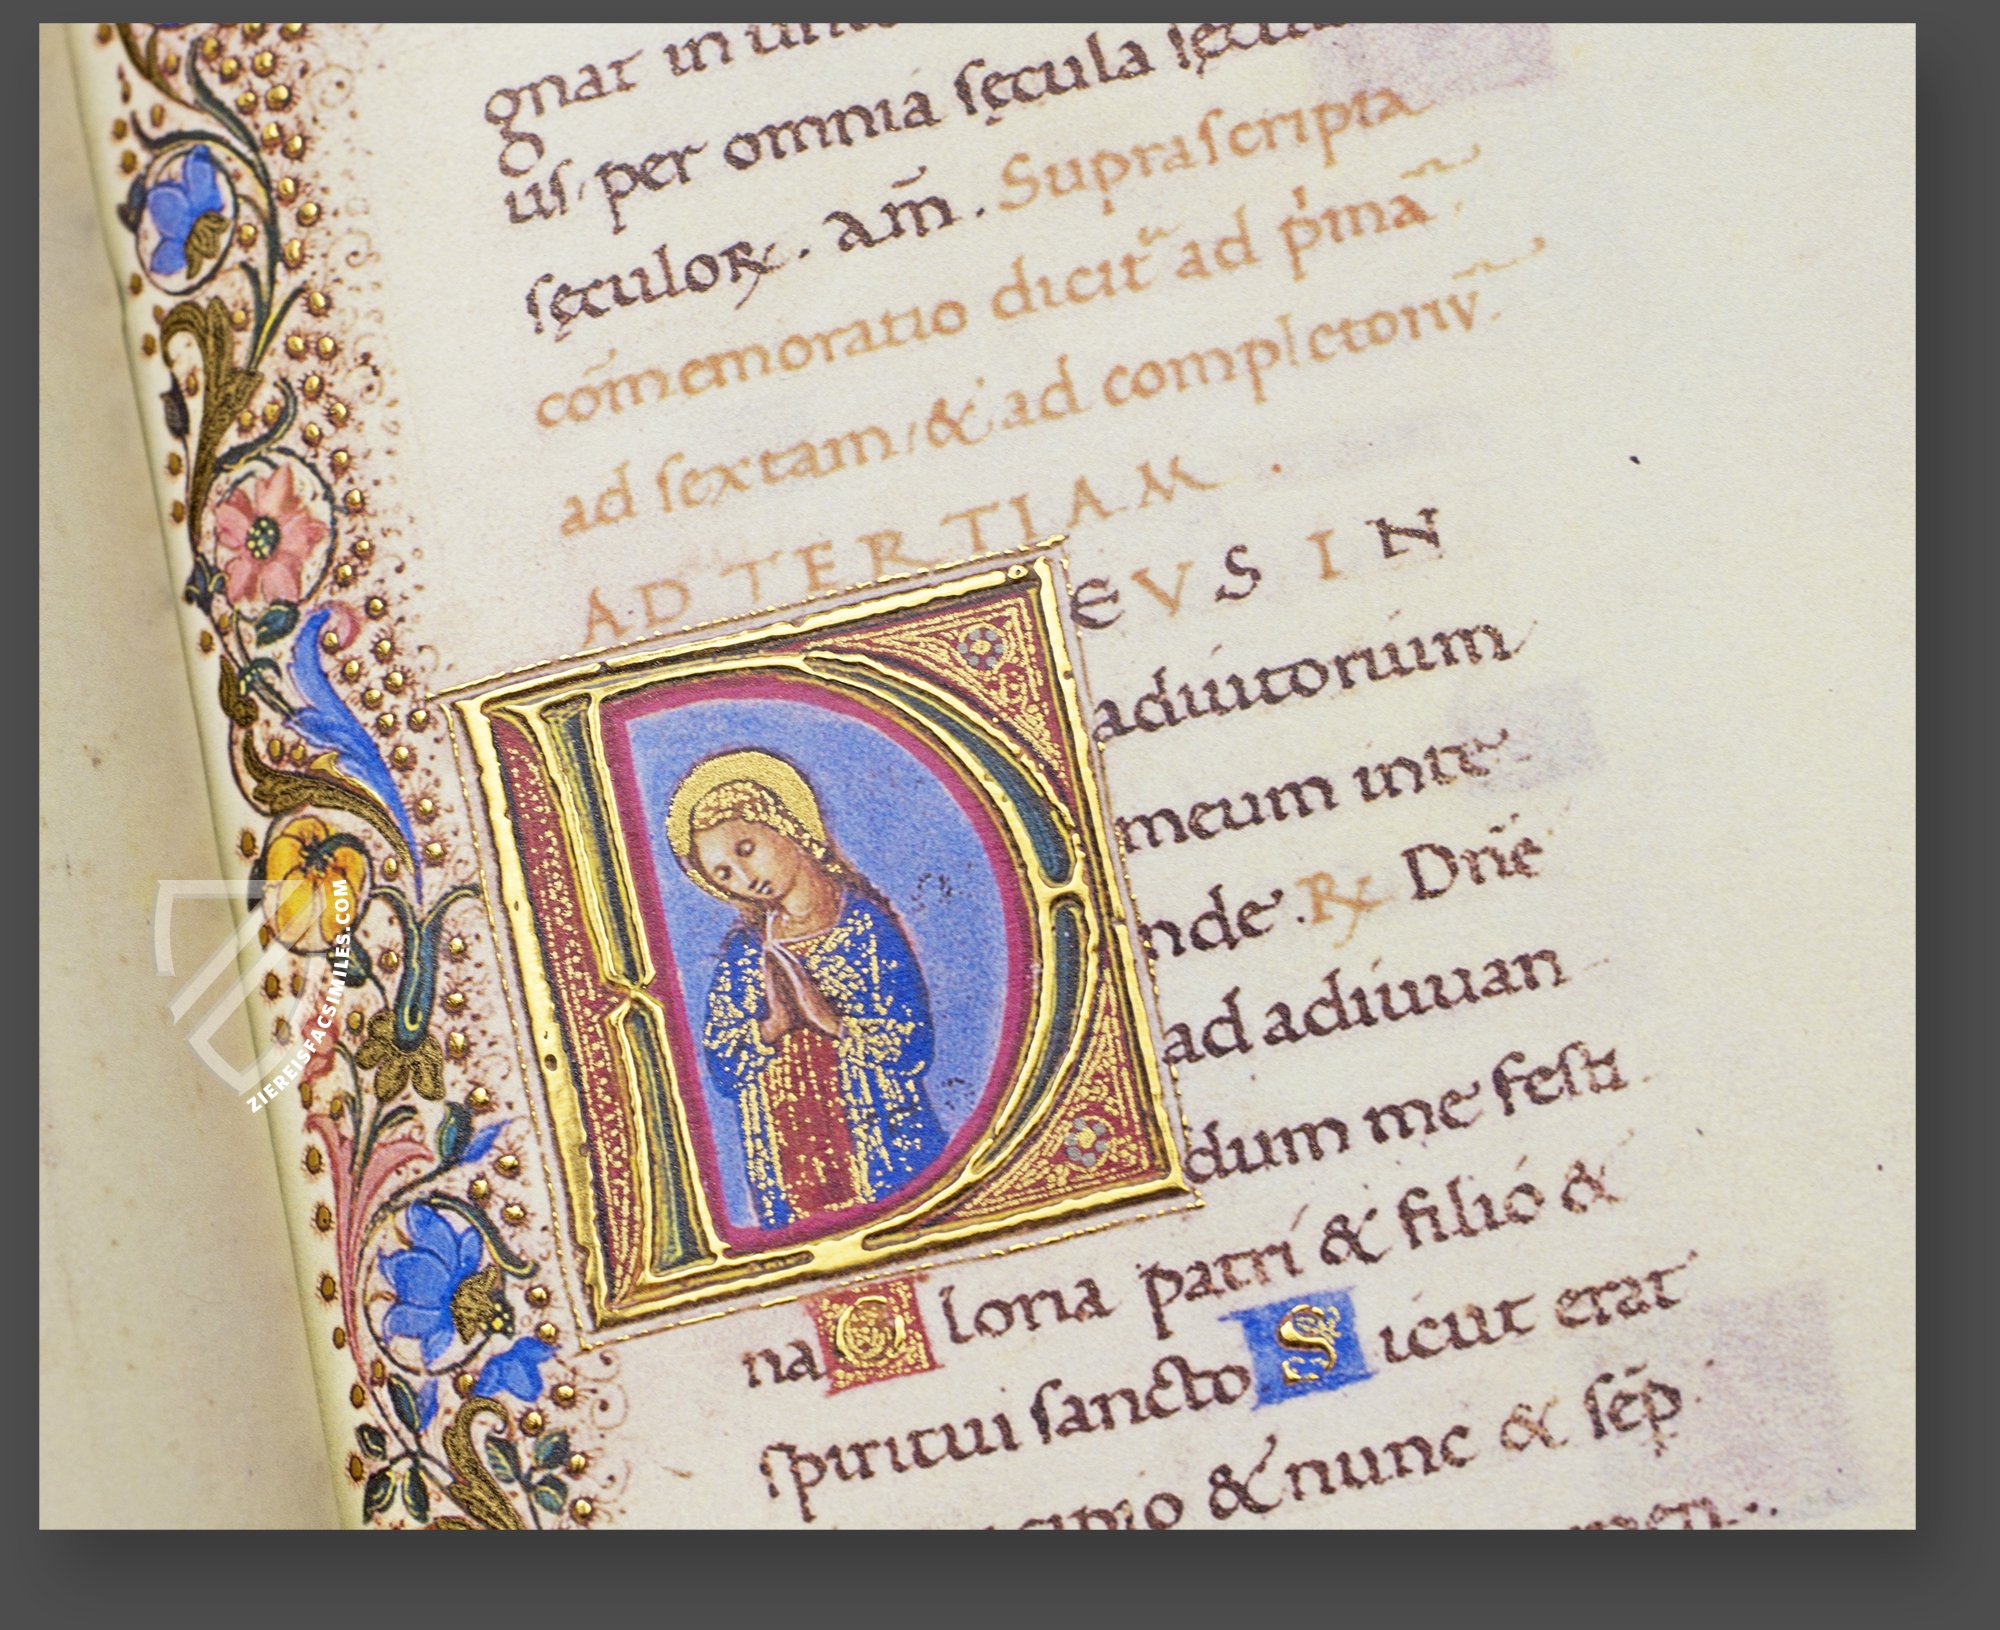 gnat in
us, per omnia sęcula
sęculoꝝ. am̄. Suprascripta
cōmemoratio dicit᷑ ad p̓mā
ad sextam, & ad completoriū.
AD TERTIAM.
DEVS IN
adiutorium
meum inte
nde. ℟ Dn̄e
ad adiuuan
dum me festi
na Gloria patri & filio &
spiritui sancto Sicut erat
& nunc & sēp
ZIEREISFACSIMILES.COM